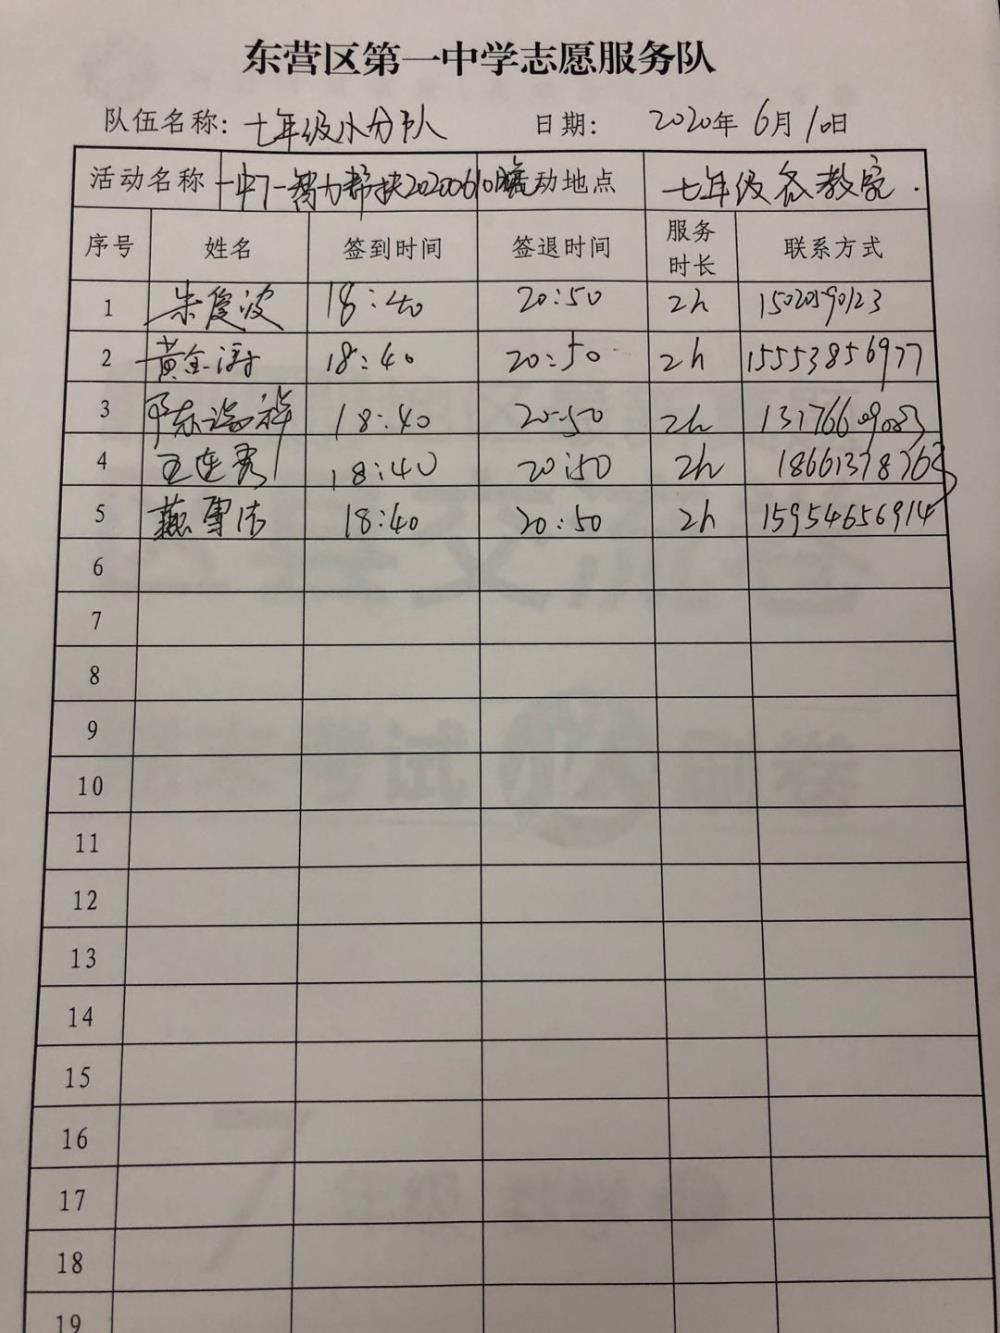 东营区第一中学志愿服务队
队伍名称: 七年级小分队 日期: 2020年 6月 10日
活动名称 一中7一智力帮扶20200610晚 动地点 七年级各教室.
序号 姓名 签到时间 签退时间 服务时长 联系方式
1 朱爱波 18:40 20:50 2h 15020590123
2 18:40 20:50 2h 15553856977
3 18:40 20:50 2h 13176609083
4 王连秀 18:40 20:50 2h 18661378763
5 燕雪洁 18:40 20:50 2h 15954656914
6
7
8
9
10
11
12
13
14
15
16
17
18
19